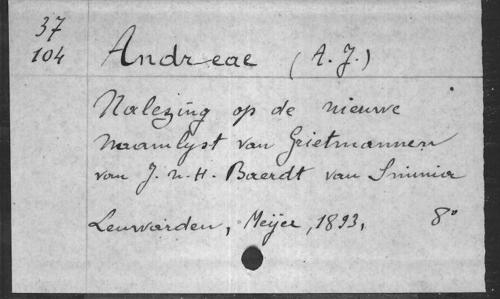 37
104
Andreae (A. J.)
Nalezing op de nieuwe
naamlyst van Grietmannen
van J. v. H. Baerdt van Sminia
Leuwarden, Meijer, 1893, 8°